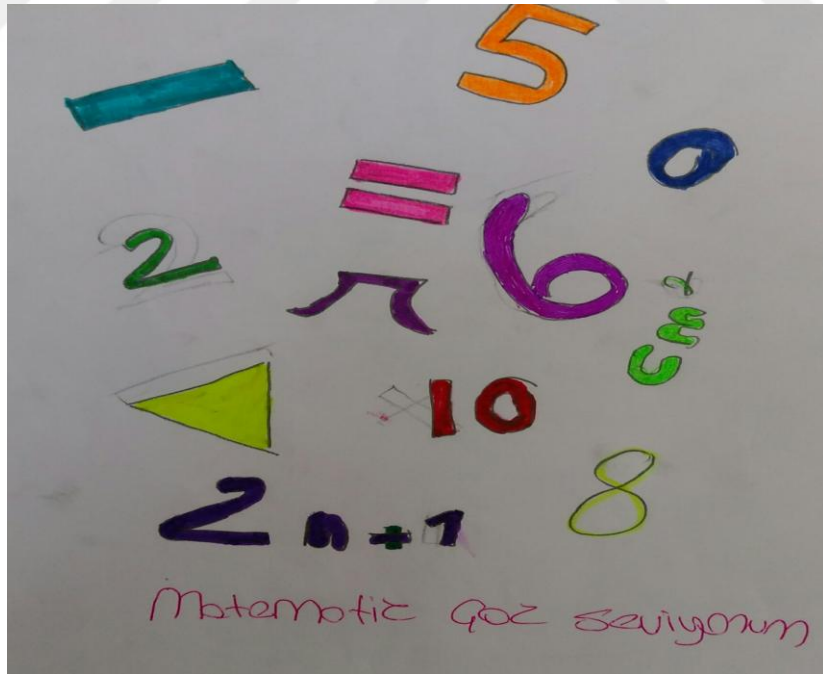 − 5
0
=
2 π 6
cm²
10
2n+1 8
Matematik çok seviyorum